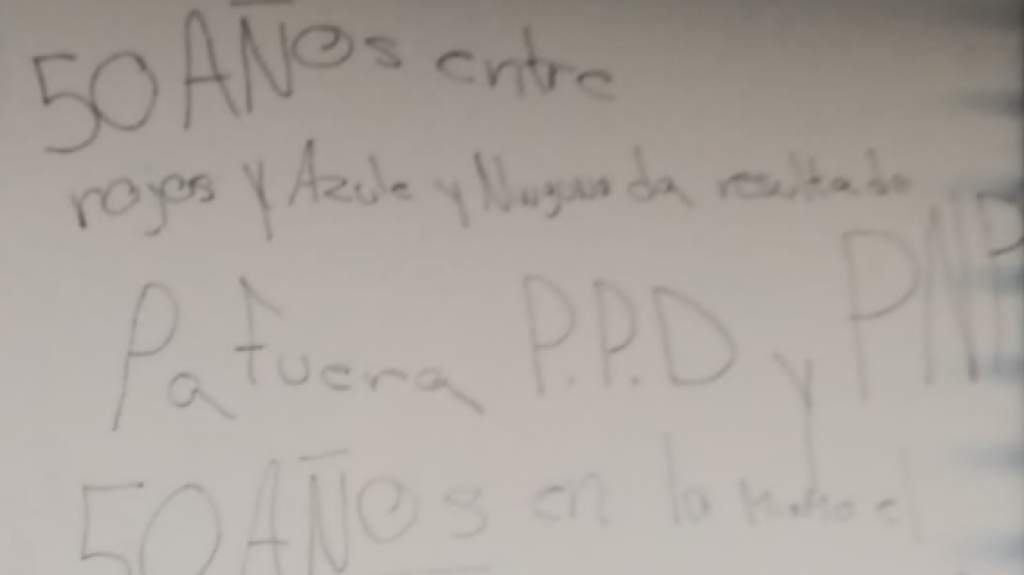 50 AÑOS entre
rojos y Azule y Niguno da resultado
Pa fuera P.P.D y PNP
50 AÑOS en la